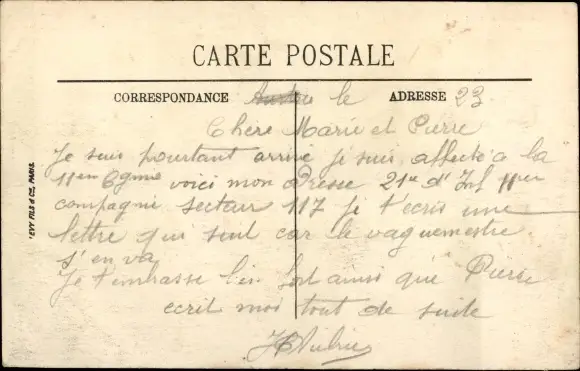 CARTE POSTALE
CORRESPONDANCE le ADRESSE 23
Chère Marie et Pierre
Je suis pourtant arrivé je suis affecté a la
11em Cgnie voici mon Dresse 21e d'Inf 11em
compagnie secteur 117 je t'ecris une
lettre qui suit car le vaguemestre
s'en va
Je t'embrasse bien fort ainsi que Pierre
ecrit moi tout de suite
LEVY FILS & Cie, PARIS